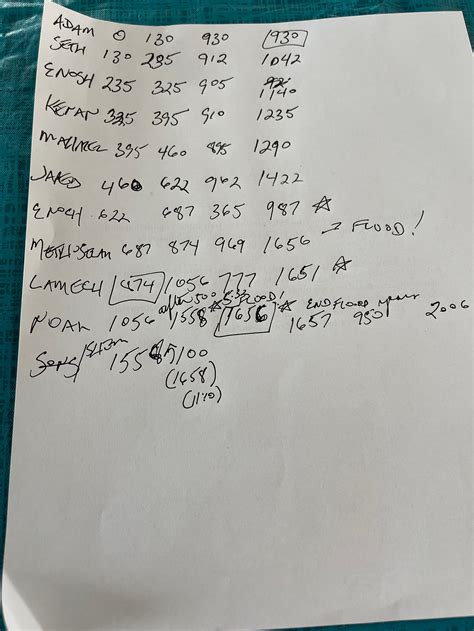 ADAM 0 130 930 930
SETH 130 235 912 1042
ENOSH 235 325 905 1140
KENAN 325 395 910 1235
MAHALEL 395 460 895 1290
JARED 460 622 962 1422
ENOCH 622 687 365 987 ☆
METHUSELAH 687 874 969 1656 → FLOOD!
LAMECH 874 1056 777 1651 ☆
NOAH 1056 1558 1656 END FLOOD 1657 950 2006
FLOOD!
SONS/SHEM 1558 100
(1658)